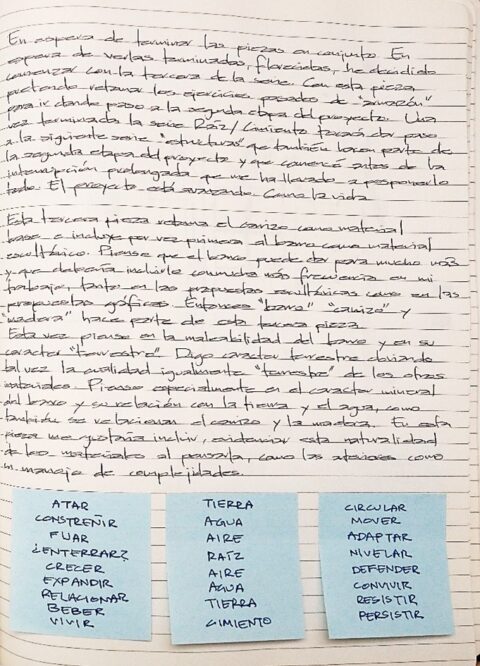 En espera de terminar las piezas en conjunto. En
espera de verlas terminadas, florecidas, he decidido
comenzar con la tercera de la serie. Con esta pieza
pretendo retomar los ejercicios pasados de "armazón"
para ir dando paso a la segunda etapa del proyecto. Una
vez terminada la serie Raíz/Cimiento tocará dar paso
a la siguiente serie "estructuras" que también hacen parte de
la segunda etapa del proyecto y que comencé antes de la
interrupción prolongada que me ha llevado a posponerlo
todo. El proyecto está avanzando. Como la vida
Esta tercera pieza retoma el carrizo como material
base e incluye por vez primera al barro como material
escultórico. Pienso que el barro puede dar para mucho más
y que debería incluirle con mucha más frecuencia en mi
trabajo, tanto en las propuestas escultóricas como en las
propuestas gráficas. Entonces "barro" "carrizo" y
"madera" hace parte de esta tercera pieza
Esta vez pienso en la maleabilidad del barro y en su
caracter "terrestre". Digo caracter terrestre obviando
tal vez la cualidad igualmente "terrestre" de los otros
materiales. Pienso especialmente en el caracter mineral
del barro y su relación con la tierra y el agua, como
también se relacionan el carrizo y la madera. En esta
pieza me gustaría incluir, evidenciar esta naturalidad
de los materiales al pensarla, como las anteriores como
un manejo de complejidades.
ATAR
CONSTREÑIR
FIJAR
¿ENTERRAR?
CRECER
EXPANDIR
RELACIONAR
BEBER
VIVIR
TIERRA
AGUA
AIRE
RAÍZ
AIRE
AGUA
TIERRA
CIMIENTO
CIRCULAR
MOVER
ADAPTAR
NIVELAR
DEFENDER
CONVIVIR
RESISTIR
PERSISTIR